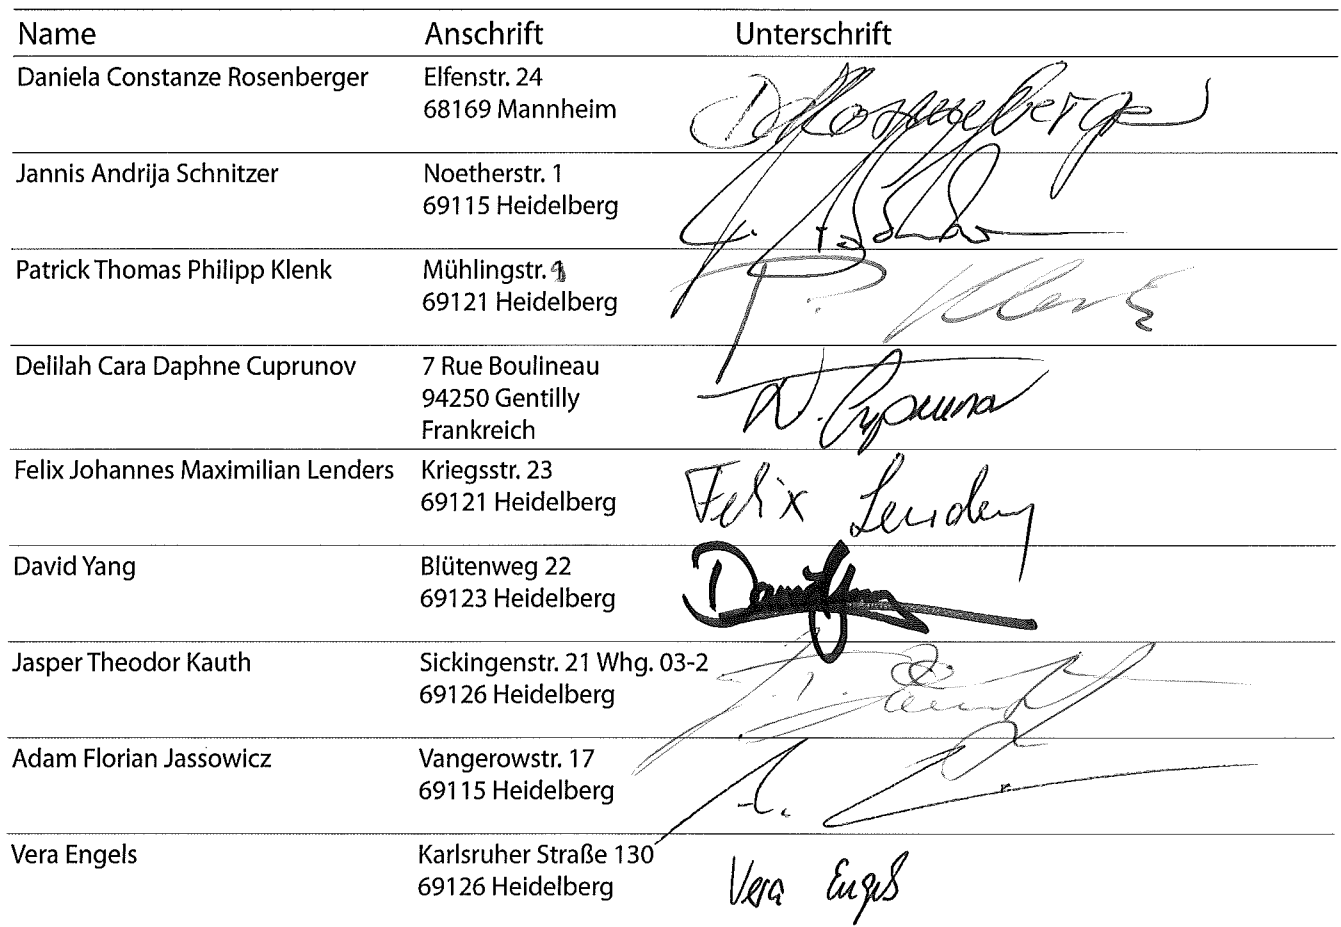 Name Anschrift Unterschrift
Daniela Constanze Rosenberger Elfenstr. 24
68169 Mannheim D Rosenberger
Jannis Andrija Schnitzer Noetherstr. 1
69115 Heidelberg
Patrick Thomas Philipp Klenk Mühlingstr.
69121 Heidelberg P. Klenk
Delilah Cara Daphne Cuprunov 7 Rue Boulineau
94250 Gentilly
Frankreich
Felix Johannes Maximilian Lenders Kriegsstr. 23
69121 Heidelberg Felix Lenders
David Yang Blütenweg 22
69123 Heidelberg
Jasper Theodor Kauth Sickingenstr. 21 Whg. 03-2
69126 Heidelberg
Adam Florian Jassowicz Vangerowstr. 17
69115 Heidelberg
Vera Engels Karlsruher Straße 130
69126 Heidelberg Vera Engels